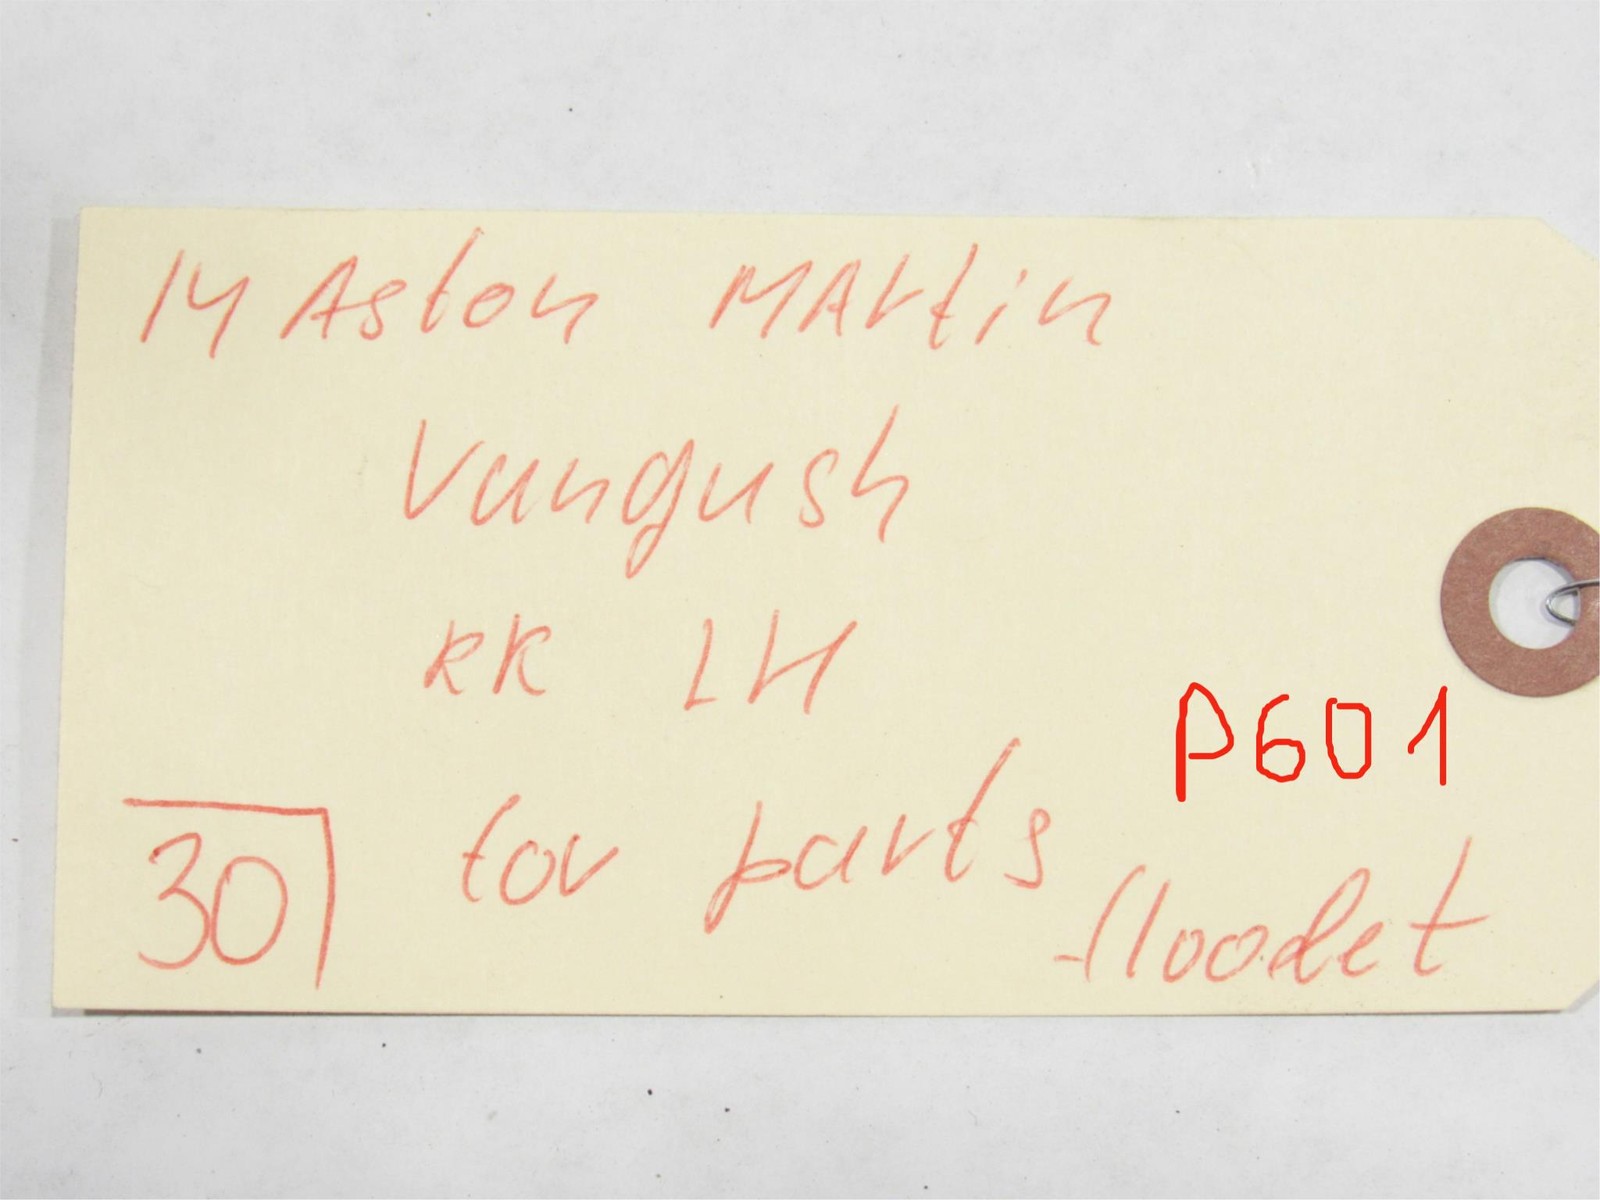 14 Aston MArtin
Vunqush
RR LH
P601
for parts
30
floodet